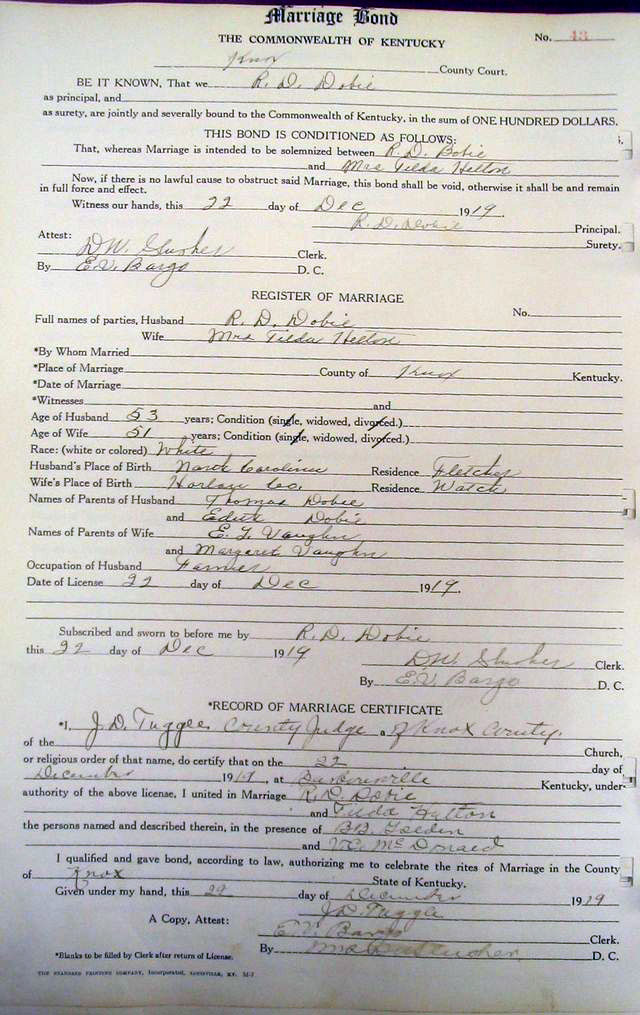 Marriage Bond
THE COMMONWEALTH OF KENTUCKY No. 43
Knox County Court.
BE IT KNOWN, That we R. D. Dobie
as principal, and
as surety, are jointly and severally bound to the Commonwealth of Kentucky, in the sum of ONE HUNDRED DOLLARS.
THIS BOND IS CONDITIONED AS FOLLOWS:
That, whereas Marriage is intended to be solemnized between R. D. Bobie
and Mrs Tilda Helton
Now, if there is no lawful cause to obstruct said Marriage, this bond shall be void, otherwise it shall be and remain
in full force and effect.
Witness our hands, this 22 day of Dec 1919.
R. D. Dobie Principal.
Surety.
Attest:
D. W. Slusher Clerk.
By E. V. Bargo D. C.
REGISTER OF MARRIAGE
No.
Full names of parties, Husband R. D. Dobie
Wife Mrs Tilda Helton
*By Whom Married
*Place of Marriage County of Knox Kentucky.
*Date of Marriage
*Witnesses and
Age of Husband 53 years; Condition (single, widowed, divorced.)
Age of Wife 51 years; Condition (single, widowed, divorced.)
Race: (white or colored) White
Husband's Place of Birth North Carolina Residence Fletcher
Wife's Place of Birth Harlan Co. Residence Watch
Names of Parents of Husband Thomas Dobie
and Edith Dobie
Names of Parents of Wife E. F. Vaughn
and Margaret Vaughn
Occupation of Husband Farmer
Date of License 22 day of Dec 1919.
Subscribed and sworn to before me by R. D. Dobie
this 22 day of Dec 1919
D. W. Slusher Clerk.
By E. V. Bargo D. C.
*RECORD OF MARRIAGE CERTIFICATE
*I, J. D. Tuggle County Judge a of Knox County.
of the Church,
or religious order of that name, do certify that on the 22 day of
December 1919, at Barbourville Kentucky, under
authority of the above license, I united in Marriage R. D. Dobie
and Tilda Hatton
the persons named and described therein, in the presence of B. B. Golden
and V. C. McDonald
I qualified and gave bond, according to law, authorizing me to celebrate the rites of Marriage in the County
of Knox State of Kentucky.
Given under my hand, this 22 day of December 1919
J. D. Tuggle
A Copy, Attest:
E. V. Bargo Clerk.
By D. C.
*Blanks to be filled by Clerk after return of License.
THE STANDARD PRINTING COMPANY, Incorporated, LOUISVILLE, KY.